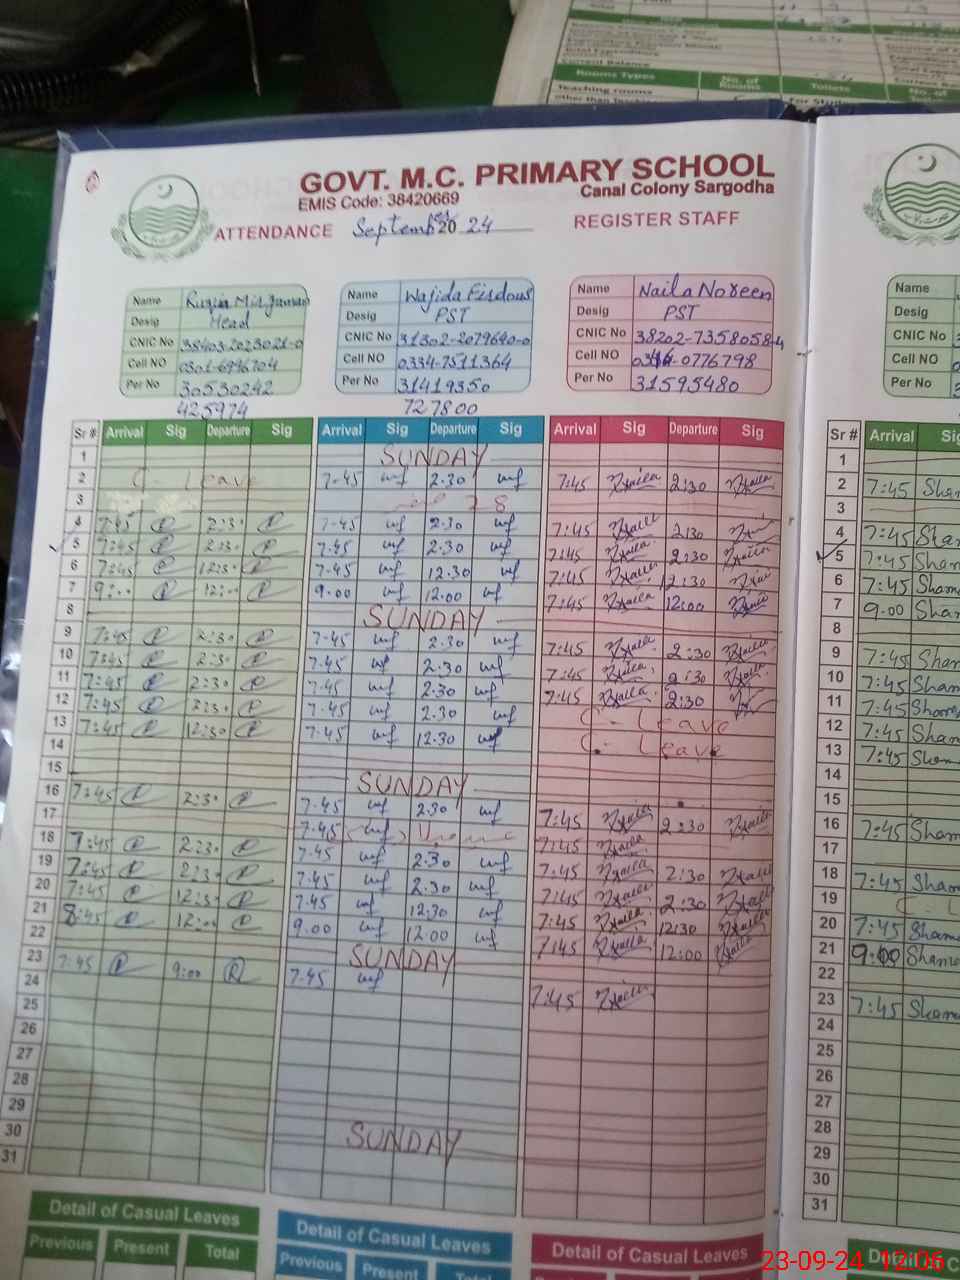 Rooms Types
No. of Rooms
Toilets
No. of
Teaching rooms
Current Balance
GOVT. M.C. PRIMARY SCHOOL
Canal Colony Sargodha
EMIS Code: 38420669
ATTENDANCE September 2024 REGISTER STAFF
Name
Desig Head
CNIC No 38403-2023021-0
Cell NO 0301-6996704
Per No 30530242
425974
Name Wajida Firdous
Desig PST
CNIC No 31302-2079690-0
Cell NO 0334-7511364
Per No 31419350
727800
Name Naila Noreen
Desig PST
CNIC No 38202-7358058-4
Cell NO 0776798
Per No 31595480
Name
Desig
CNIC No
Cell NO
Per No
Sr # Arrival Sig Departure Sig Arrival Sig Departure Sig Arrival Sig Departure Sig Sr # Arrival
1 SUNDAY 1
2 C- Leave 7-45 wf 2.30 wf 7:45 Naila 2:30 Naila 2 7:45 Sham
3 3
4 7:45 2:30 7-45 wf 2.30 wf 7:45 Naila 2:30 4 7:45 Sham
5 7:45 2:30 7.45 wf 2.30 wf 7:45 Naila 2:30 Naila 5 7:45 Sham
6 7:45 12:30 7.45 wf 12.30 wf 7:45 Naila 12:30 Naila 6 7:45 Sham
7 9:00 12:00 9.00 wf 12.00 wf 7:45 Naila 12:00 Naila 7 9.00 Sham
8 SUNDAY 8
9 7:45 2:30 7-45 wf 2.30 wf 7:45 Naila 2:30 Naila 9 7:45 Sham
10 7:45 2:30 7.45 wf 2.30 wf 7:45 Naila 2:30 Naila 10 7:45 Sham
11 7:45 2:30 7.45 wf 2.30 wf 7:45 Naila 2:30 11 7:45 Sham
12 7:45 2:30 7-45 wf 2.30 wf C- Leave 12 7:45 Sham
13 7:45 12:30 7.45 wf 12.30 wf C- Leave 13 7:45 Sham
14 14
15 SUNDAY 15
16 7:45 2:30 7.45 wf 2.30 wf 7:45 Naila 2:30 Naila 16 7:45 Sham
17 7.45 wf 7:45 Naila 17
18 7:45 2:30 7-45 wf 2.30 wf 7:45 Naila 2:30 Naila 18 7:45 Sham
19 7:45 2:30 7.45 wf 2.30 wf 7:45 Naila 2:30 Naila 19
20 7:45 12:30 7.45 wf 12.30 wf 7:45 Naila 12:30 Naila 20 7:45 Sham
21 8:45 12:00 9.00 wf 12.00 wf 7:45 Naila 12:00 Naila 21 9:00 Sham
22 SUNDAY 22
23 7:45 9:00 7-45 wf 7:45 Naila 23 7:45 Sham
24 24
25 25
26 26
27 27
28 28
29 SUNDAY 29
30 30
31 31
Detail of Casual Leaves
Previous Present Total
Detail of Casual Leaves
Previous Present Total
Detail of Casual Leaves
Previous Present Total
23-09-24 12:06